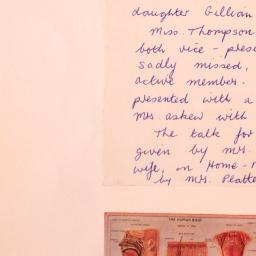 daughter Gillian
Miss. Thompson
both vice - pres
sadly missed,
active member.
presented with a
Mrs Askew with
The talk for
given by Mrs
wife, on Home-
by Mrs. Platt
THE HUMAN BODY